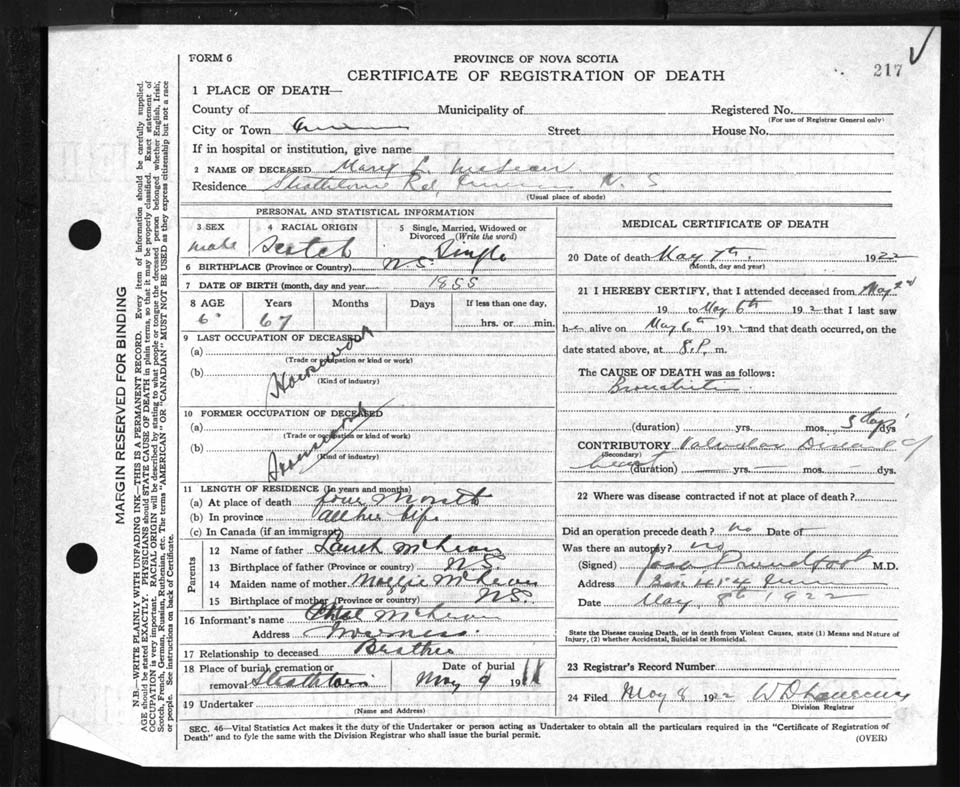 FORM 6
PROVINCE OF NOVA SCOTIA
CERTIFICATE OF REGISTRATION OF DEATH
217
1 PLACE OF DEATH—
County of Municipality of Registered No.
(For use of Registrar General only)
City or Town Street House No.
If in hospital or institution, give name
2 NAME OF DECEASED Mary
Residence Rd, N. S
(Usual place of abode)
PERSONAL AND STATISTICAL INFORMATION
3 SEX
male
4 RACIAL ORIGIN
Scotch
5 Single, Married, Widowed or Divorced (Write the word)
Single
6 BIRTHPLACE (Province or Country) N.S.
7 DATE OF BIRTH (month, day and year) 1855
8 AGE Years Months Days If less than one day,
67 hrs. or min.
9 LAST OCCUPATION OF DECEASED
(a)
(Trade or occupation or kind or work)
(b)
(Kind of industry)
Housework
10 FORMER OCCUPATION OF DECEASED
(a)
(Trade or occupation or kind or work)
(b)
(Kind of industry)
11 LENGTH OF RESIDENCE (In years and months)
(a) At place of death four Month
(b) In province all her life
(c) In Canada (if an immigrant)
Parents
12 Name of father McLean
13 Birthplace of father (Province or country) N.S.
14 Maiden name of mother Maggie McLean
15 Birthplace of mother (Province or country) N.S.
16 Informant's name McLean
Address Inverness.
17 Relationship to deceased Brother
18 Place of burial, cremation or removal
Date of burial
May 9 19
19 Undertaker
(Name and Address)
MEDICAL CERTIFICATE OF DEATH
20 Date of death May 7th. 1922
(Month, day and year)
21 I HEREBY CERTIFY, that I attended deceased from May
19 to May 6th 192 that I last saw
h alive on May 6th 192 and that death occurred, on
date stated above, at 8.P. m.
The CAUSE OF DEATH was as follows:
Bronchitis
(duration) yrs. mos. days
CONTRIBUTORY Valvular Disease of
(Secondary)
heart (duration) yrs. mos. dys.
22 Where was disease contracted if not at place of death?
Did an operation precede death? no Date of
Was there an autopsy? no
(Signed) Proudfoot M.D.
Address Box
Date May 8th 1922
State the Disease causing Death, or in death from Violent Causes, state (1) Means and Nature of
Injury, (2) whether Accidental, Suicidal or Homicidal.
23 Registrar's Record Number
24 Filed May 8 1922
Division Registrar
SEC. 46—Vital Statistics Act makes it the duty of the Undertaker or person acting as Undertaker to obtain all the particulars required in the "Certificate of Registration of
Death" and to fyle the same with the Division Registrar who shall issue the burial permit.
(OVER)
MARGIN RESERVED FOR BINDING
N.B.—WRITE PLAINLY WITH UNFADING INK—THIS IS A PERMANENT RECORD. Every item of information should be carefully supplied.
AGE should be stated EXACTLY. PHYSICIANS should STATE CAUSE OF DEATH in plain terms, so that it may be properly classified. Exact statement of
OCCUPATION is very important. RACIAL ORIGIN will be described by stating to what people or tongue the deceased person belonged whether English, Irish,
Scotch, French, German, Russian, Ruthenian, etc. The terms "AMERICAN" OR "CANADIAN" MUST NOT BE USED as they express citizenship but not a race
or people. See instructions on back of Certificate.